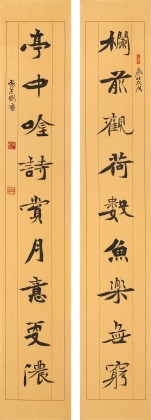 欄前觀荷數魚樂無窮
亭中吟詩賞月意更濃